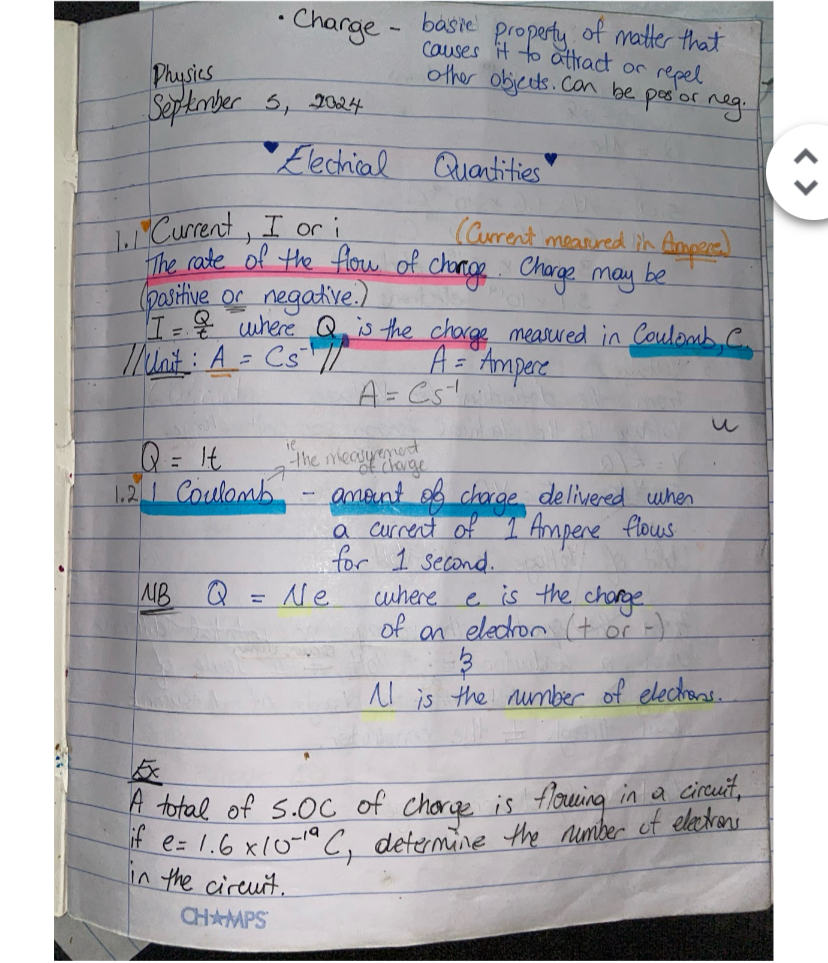 • Charge - basic property of matter that
causes it to attract or repel
other objects. Can be pos or neg.
Physics
September 5, 2024
Electrical Quantities
1.1 Current, I or i (Current measured in Ampere)
The rate of the flow of charge. Charge may be
(positive or negative.)
I = Q/t where Q is the charge measured in Coulomb, C.
//Unit: A = Cs⁻¹// A = Ampere
A = Cs⁻¹
u
Q = It ie the measurement
of charge
1.2 1 Coulomb - amount of charge delivered when
a current of 1 Ampere flows
for 1 second.
NB Q = Ne where e is the charge
of an electron (+ or -)
&
N is the number of electrons.
Ex
A total of 5.0C of charge is flowing in a circuit,
if e = 1.6 x10⁻¹⁹ C, determine the number of electrons
in the circuit.
CHAMPS